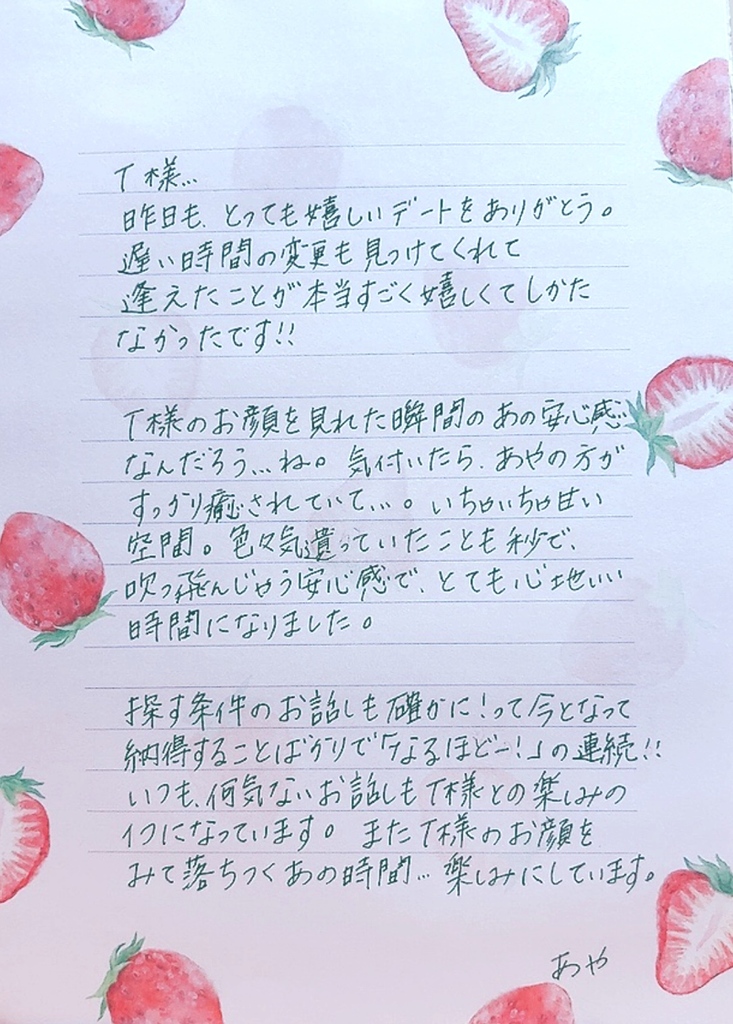 T様…
昨日も、とっても嬉しいデートをありがとう。
遅い時間の変更も見つけてくれて
逢えたことが本当すごく嬉しくてしかた
なかったです!!
T様のお顔を見れた瞬間のあの安心感
なんだろう…ね。気付いたら、あやの方が
すっかり癒されていて…。いちゃいちゃ甘い
空間。色々気遣っていたことも秒で、
吹っ飛んじゃう安心感で、とても心地いい
時間になりました。
探す条件のお話しも確かに!って今となって
納得することばかりで「なるほどー!」の連続!!
いつも、何気ないお話しもT様との楽しみの
1つになっています。またT様のお顔を
みて落ちつくあの時間…楽しみにしています。
あや